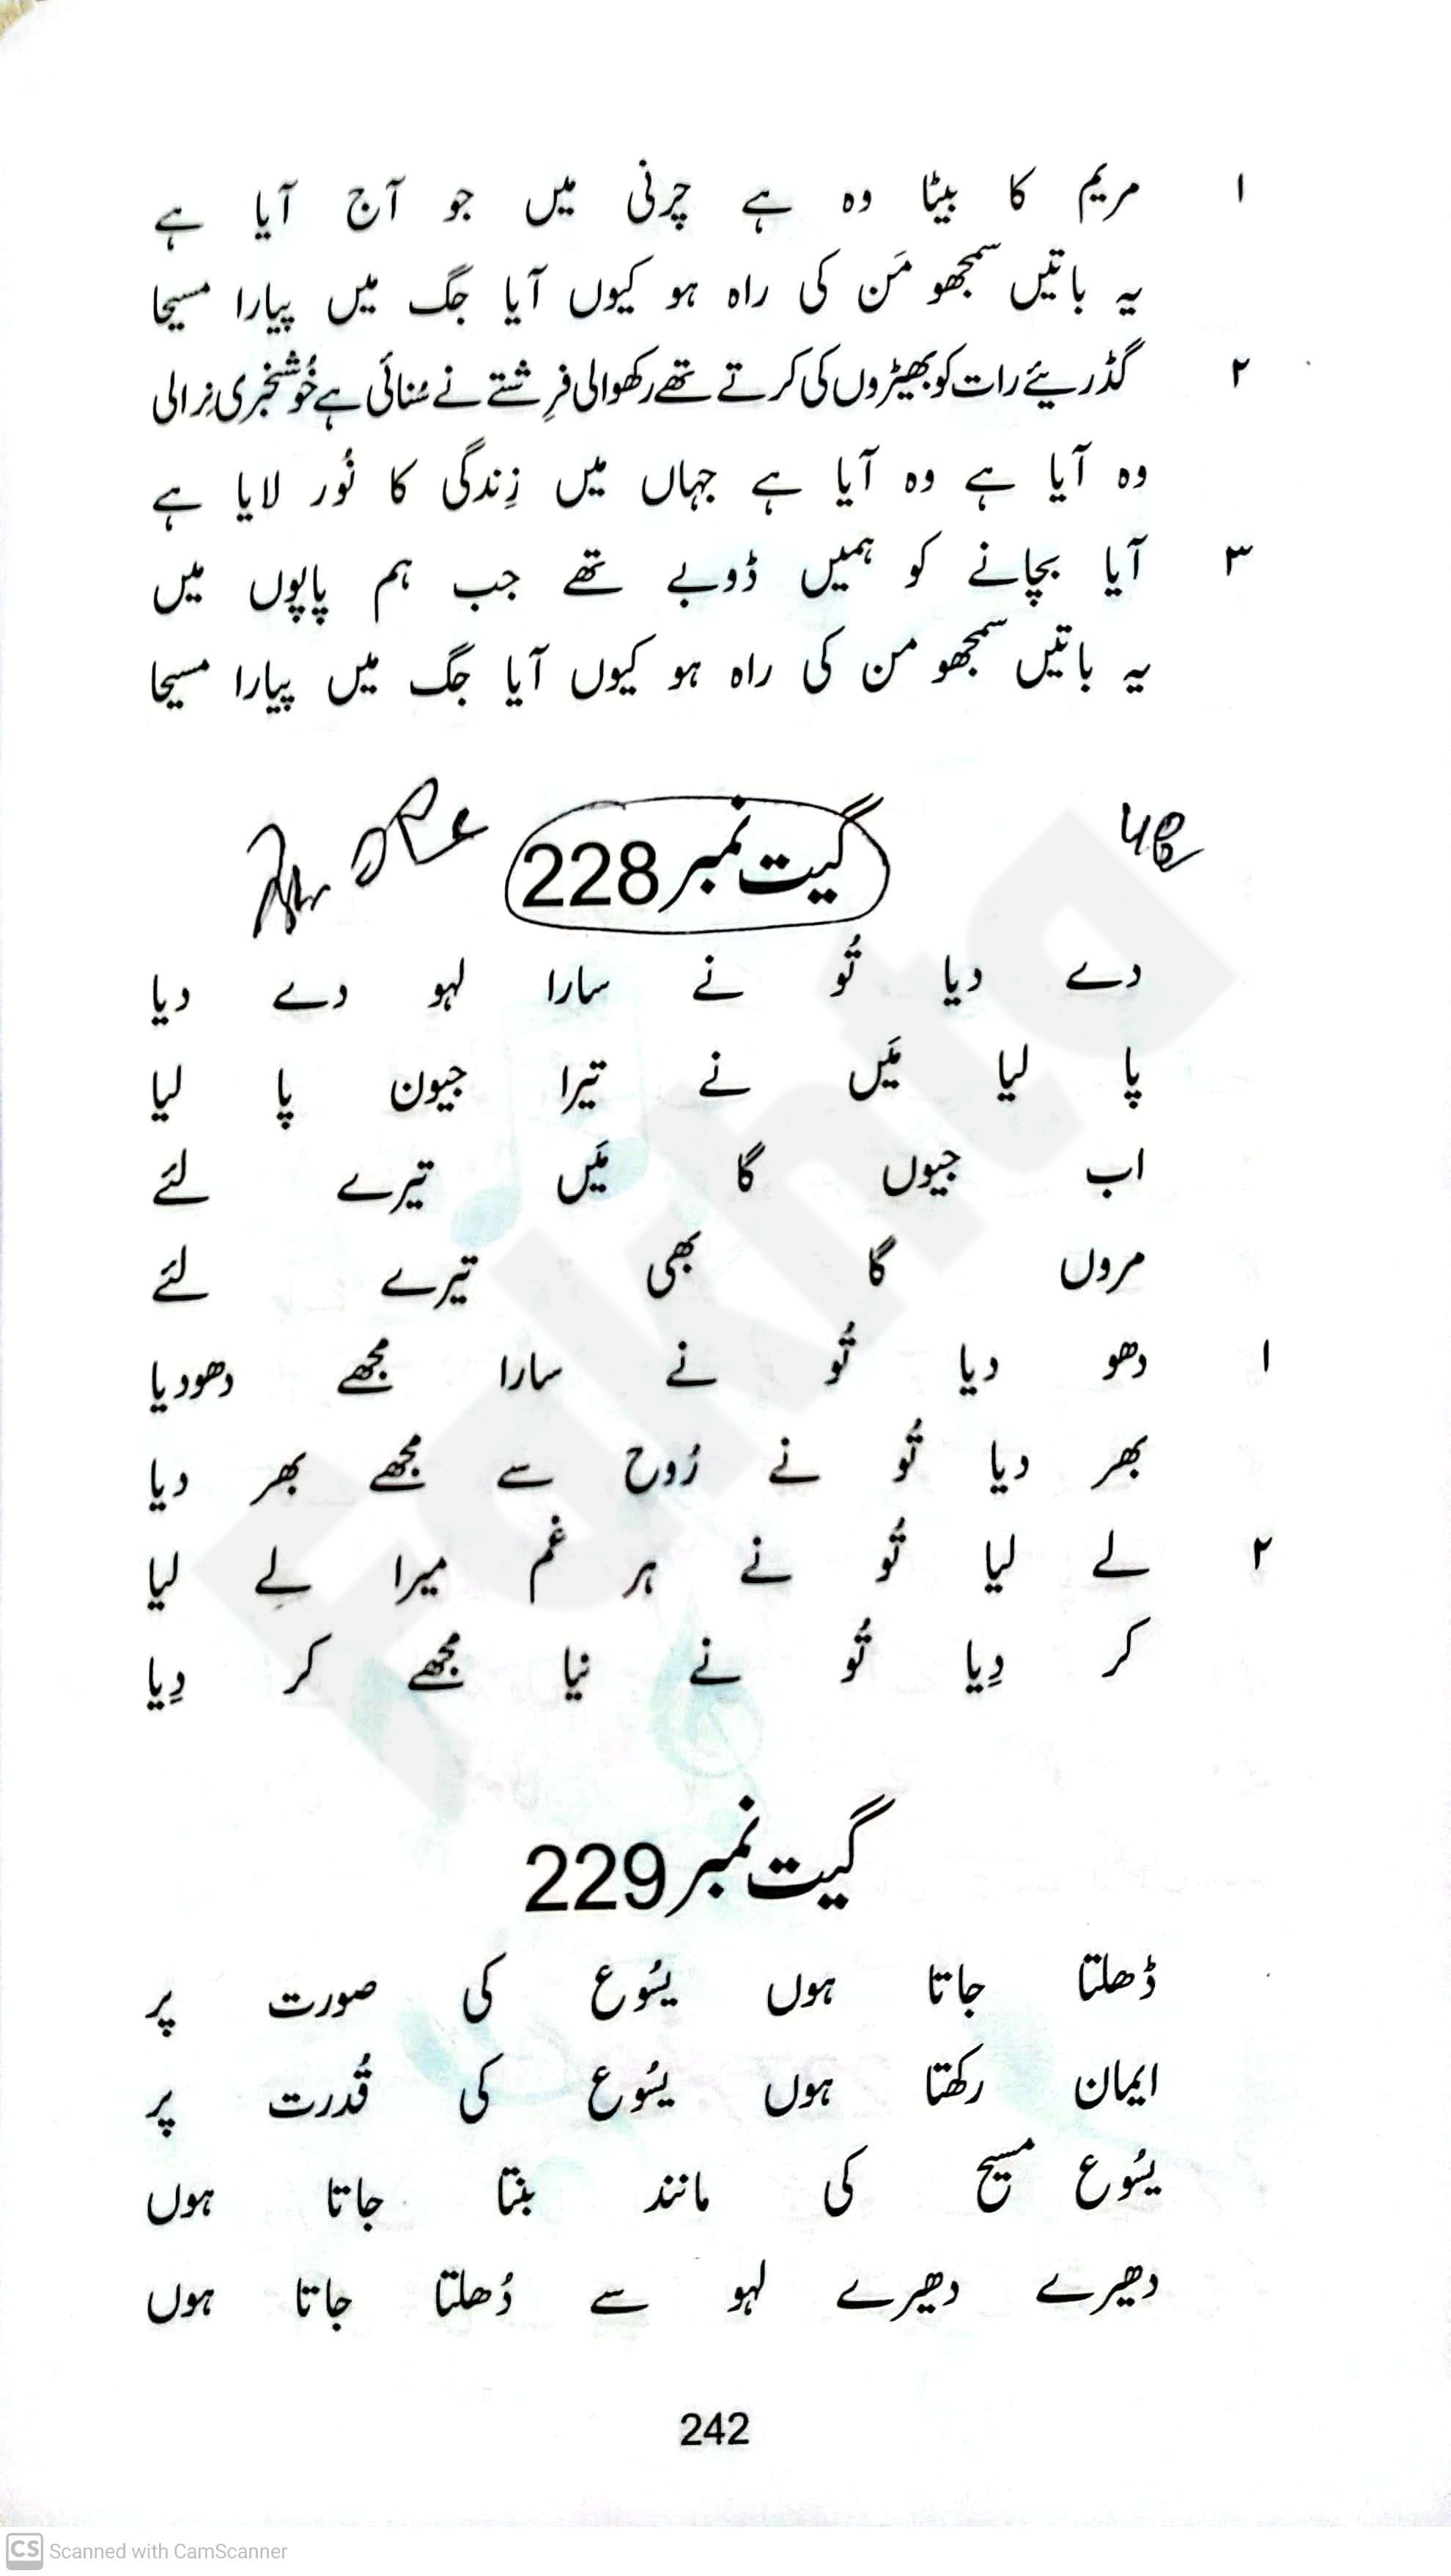 ۱ مریم کا بیٹا وہ ہے چرنی میں جو آج آیا ہے
یہ باتیں سمجھو مَن کی راہ ہو کیوں آیا جگ میں پیارا مسیحا
۲ گڈریئے رات کو بھیڑوں کی کرتے تھے رکھوالی فرِشتے نے سُنائی ہے خُوشخبری نِرالی
وہ آیا ہے وہ آیا ہے جہاں میں زِندگی کا نُور لایا ہے
۳ آیا بچانے کو ہمیں ڈوبے تھے جب ہم پاپوں میں
یہ باتیں سمجھو من کی راہ ہو کیوں آیا جگ میں پیارا مسیحا
گیت نمبر 228
دے دیا تُو نے سارا لہو دے دیا
پا لیا مَیں نے تیرا جیون پا لیا
اب جیوں گا مَیں تیرے لئے
مروں گا بھی تیرے لئے
۱ دھو دیا تُو نے سارا مجھے دھودیا
بھر دیا تُو نے رُوح سے مجھے بھر دیا
۲ لے لیا تُو نے ہر غم میرا لے لیا
کر دِیا تُو نے نیا مجھے کر دِیا
گیت نمبر 229
ڈھلتا جاتا ہوں یسُوع کی صورت پر
ایمان رکھتا ہوں یسُوع کی قُدرت پر
یسُوع مسیح کی مانند بنتا جاتا ہوں
دھیرے دھیرے لہو سے دُھلتا جاتا ہوں
242
Fakhta
CS Scanned with CamScanner